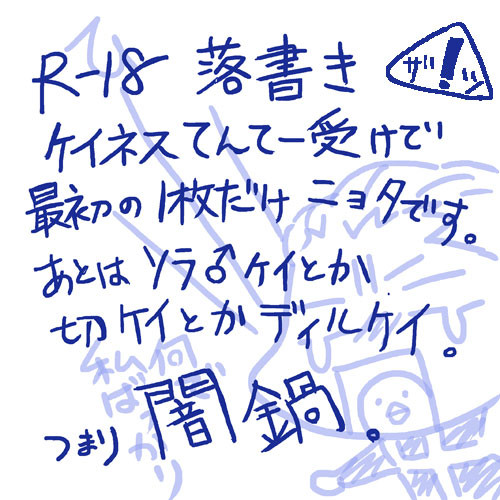 R-18 落書き
ザツ!
ケイネスてんてー受けで
最初の1枚だけ ニョタです。
あとは ソラ♂ケイとか
切ケイとか ディルケイ。
つまり 闇鍋。
私ばっかり